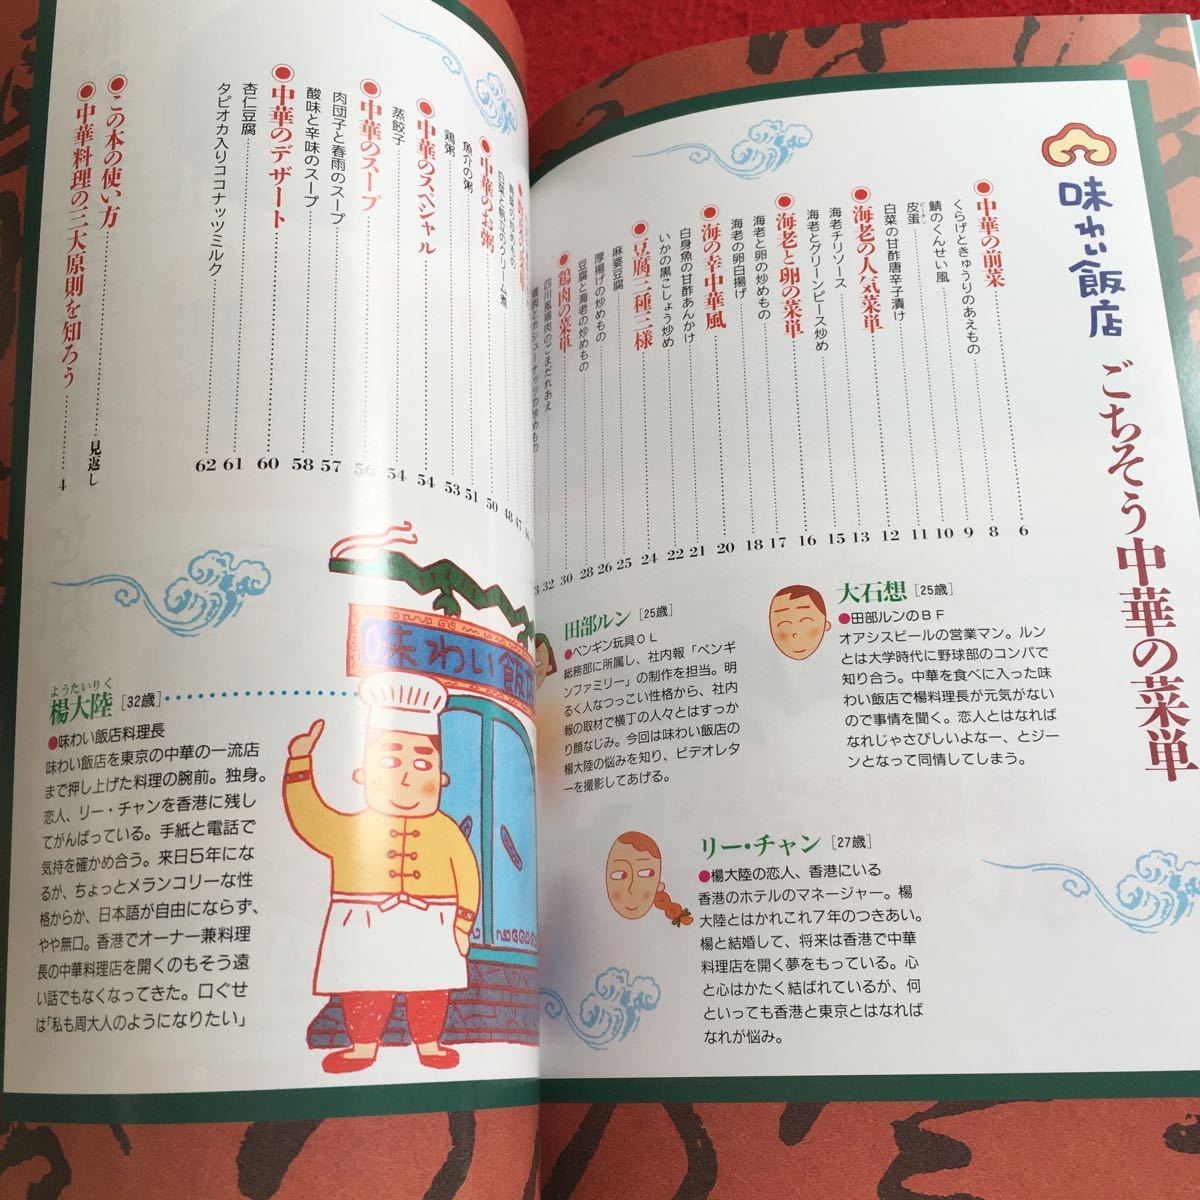 味わい飯店
ごちそう中華の菜単
●中華の前菜……6
くらげときゅうりのあえもの……8
鯖のくんせい風……9
皮蛋……10
ピータン
白菜の甘酢唐辛子漬け……11
●海老の人気菜単……12
海老チリソース……13
海老とグリーンピース炒め……15
●海老と卵の菜単……16
海老と卵の炒めもの……17
海老の卵白揚げ……18
●海の幸中華風……20
白身魚の甘酢あんかけ……21
いかの黒こしょう炒め……22
●豆腐三種三様……24
麻婆豆腐……25
厚揚げの炒めもの……26
豆腐と海老の炒めもの……28
●鶏肉の菜単……30
四川風鶏肉のごまだれあえ……32
鶏肉とカシューナッツの炒めもの
白菜と帆立のクリーム煮
●中華のお粥……50
魚介の粥……51
鶏粥……53
●中華のスペシャル……54
蒸餃子……54
●中華のスープ……56
肉団子と春雨のスープ……57
酸味と辛味のスープ……58
●中華のデザート……60
杏仁豆腐……61
タピオカ入りココナッツミルク……62
●この本の使い方……見返し
●中華料理の三大原則を知ろう……4
大石想 [25歳]
●田部ルンのＢＦ
オアシスビールの営業マン。ルン
とは大学時代に野球部のコンパで
知り合う。中華を食べに入った味
わい飯店で楊料理長が元気がない
ので事情を聞く。恋人とはなれば
なれじゃさびしいよなー、とジー
ンとなって同情してしまう。
田部ルン [25歳]
●ペンギン玩具ＯＬ
総務部に所属し、社内報「ペンギ
ンファミリー」の制作を担当。明
るく人なつっこい性格から、社内
報の取材で横丁の人々とはすっか
り顔なじみ。今回は味わい飯店の
楊大陸の悩みを知り、ビデオレタ
ーを撮影してあげる。
リー・チャン [27歳]
●楊大陸の恋人、香港にいる
香港のホテルのマネージャー。楊
大陸とはかれこれ7年のつきあい。
楊と結婚して、将来は香港で中華
料理店を開く夢をもっている。心
と心はかたく結ばれているが、何
といっても香港と東京とはなれば
なれが悩み。
ようたいりく
楊大陸 [32歳]
●味わい飯店料理長
味わい飯店を東京の中華の一流店
まで押し上げた料理の腕前。独身。
恋人、リー・チャンを香港に残し
てがんばっている。手紙と電話で
気持を確かめ合う。来日5年にな
るが、ちょっとメランコリーな性
格からか、日本語が自由にならず、
やや無口。香港でオーナー兼料理
長の中華料理店を開くのもそう遠
い話でもなくなってきた。口ぐせ
は「私も周大人のようになりたい」
味わい飯店